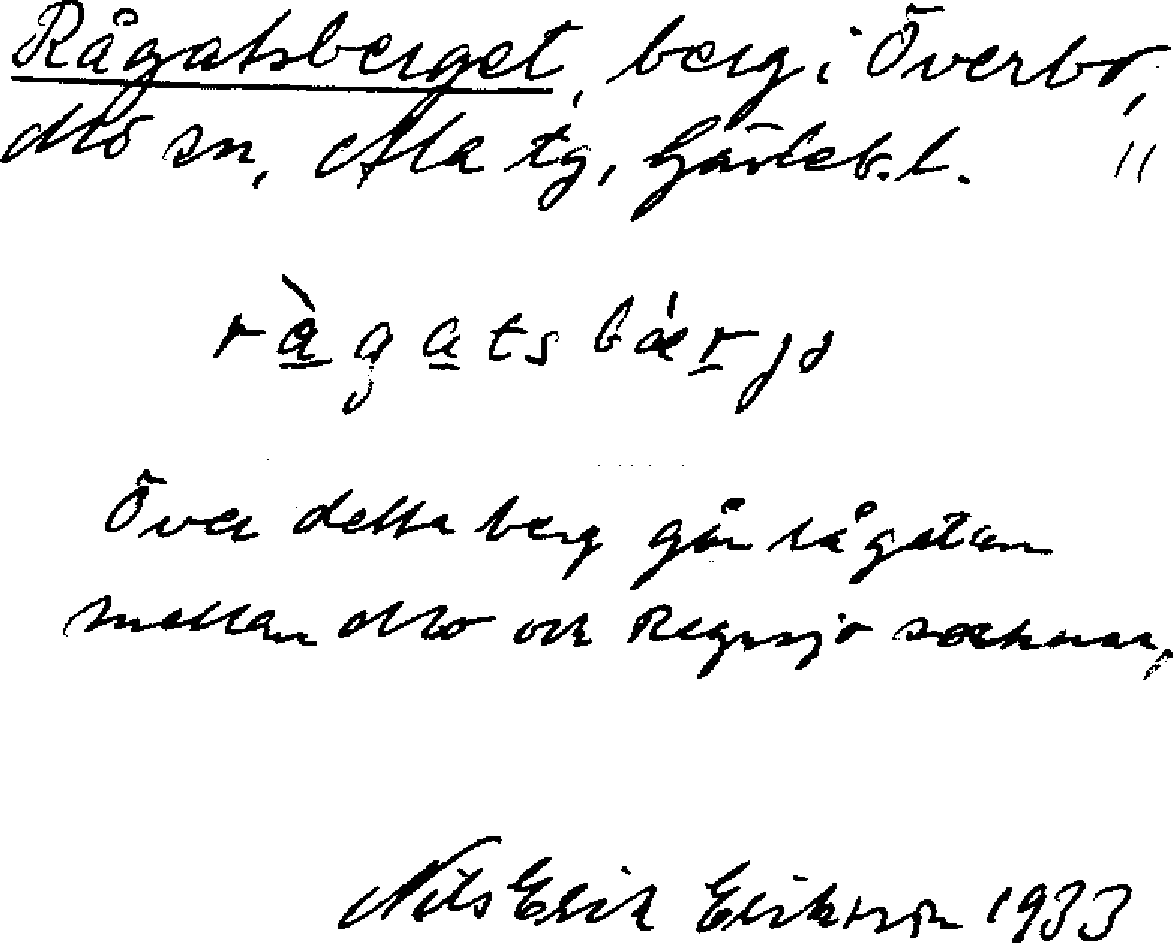 Rågatsberget, berg i Överbo,
Mo sn, Ala tg, Gävleb. l. "
ràgatsbǽrjə
Över detta berg går rågatan
mellan Mo och Regnsjö socknar,
Nils Erik Eriksson 1933